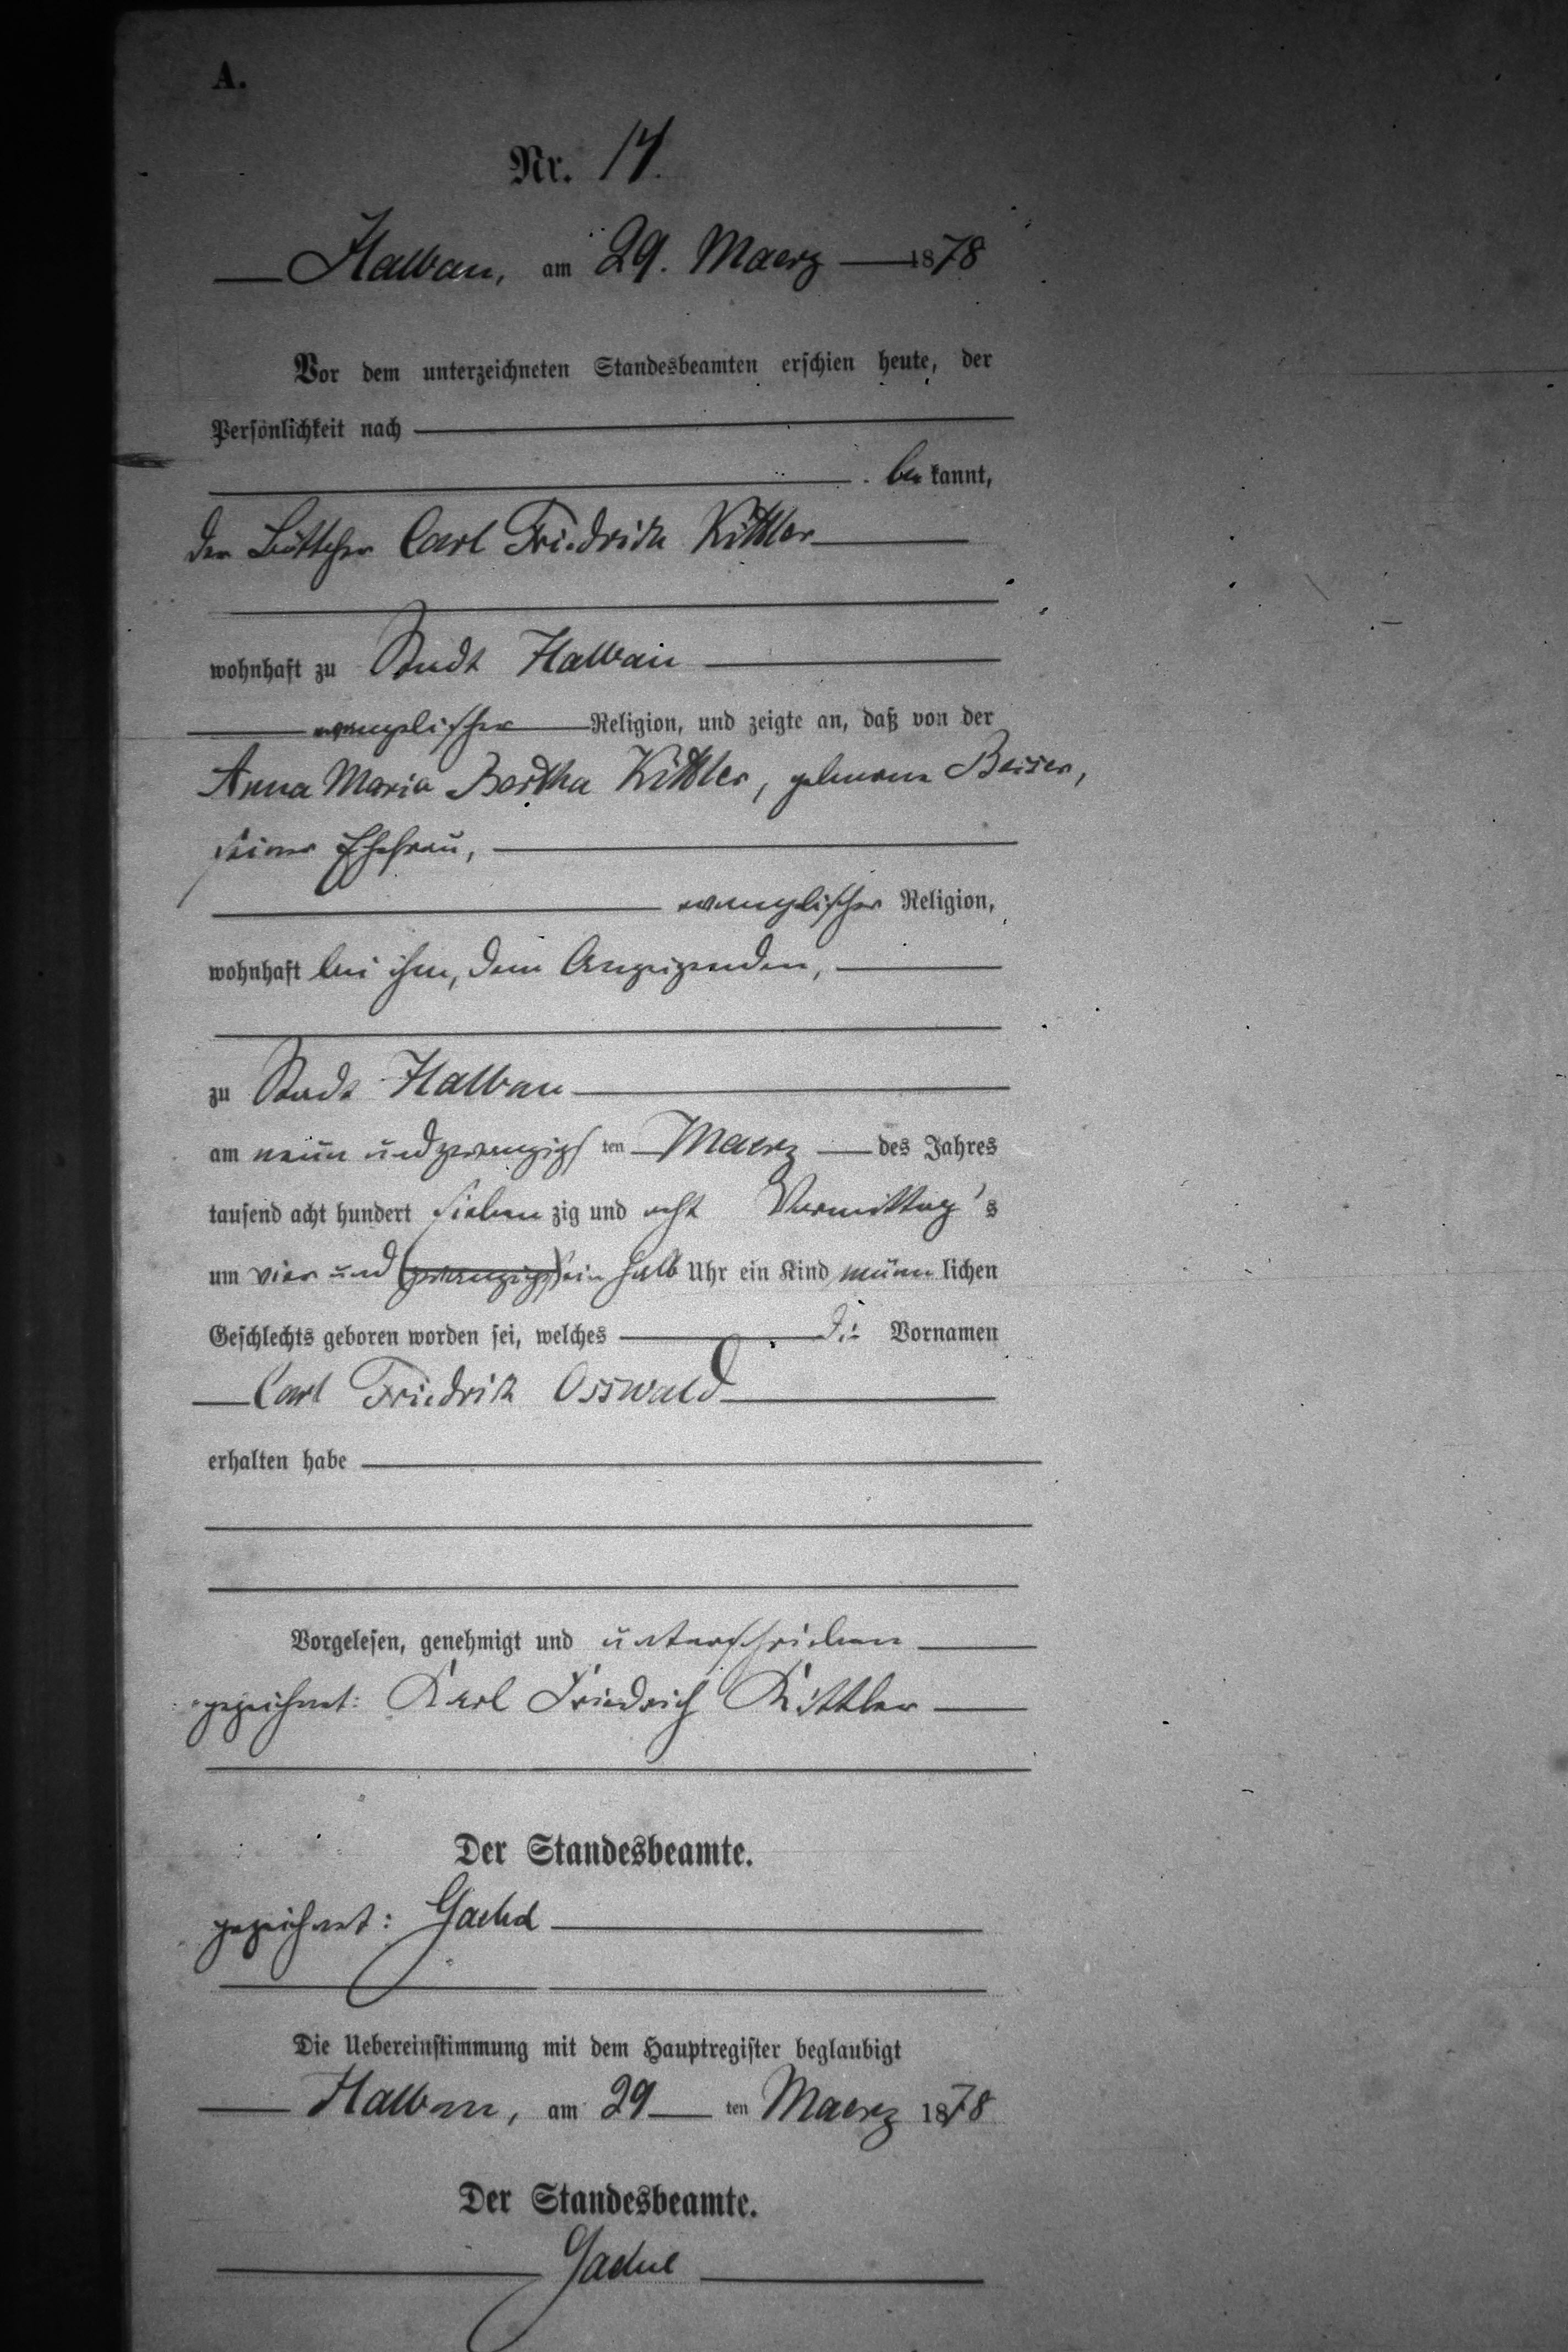 A.
Nr. 17.
Halbau, am 29. Maerz 1878
Vor dem unterzeichneten Standesbeamten erschien heute, der
Persönlichkeit nach
bekannt,
der Böttcher Carl Friedrich Kittler
wohnhaft zu Stadt Halbau
evangelischer Religion, und zeigte an, daß von der
Anna Maria Bertha Kittler, geborene Beisser,
seiner Ehefrau,
evangelischer Religion,
wohnhaft bei ihm, dem Anzeigenden,
zu Stadt Halbau
am neun und zwanzigsten Maerz des Jahres
tausend acht hundert siebenzig und acht Vormittag's
um vier und (zwanzigs) ein halb Uhr ein Kind männlichen
Geschlechts geboren worden sei, welches die Vornamen
Carl Friedrich Osswald
erhalten habe
Vorgelesen, genehmigt und unterschrieben
gezeichnet: Karl Friedrich Kittler
Der Standesbeamte.
gezeichnet:
Die Uebereinstimmung mit dem Hauptregister beglaubigt
Halbau, am 29 ten Maerz 1878
Der Standesbeamte.